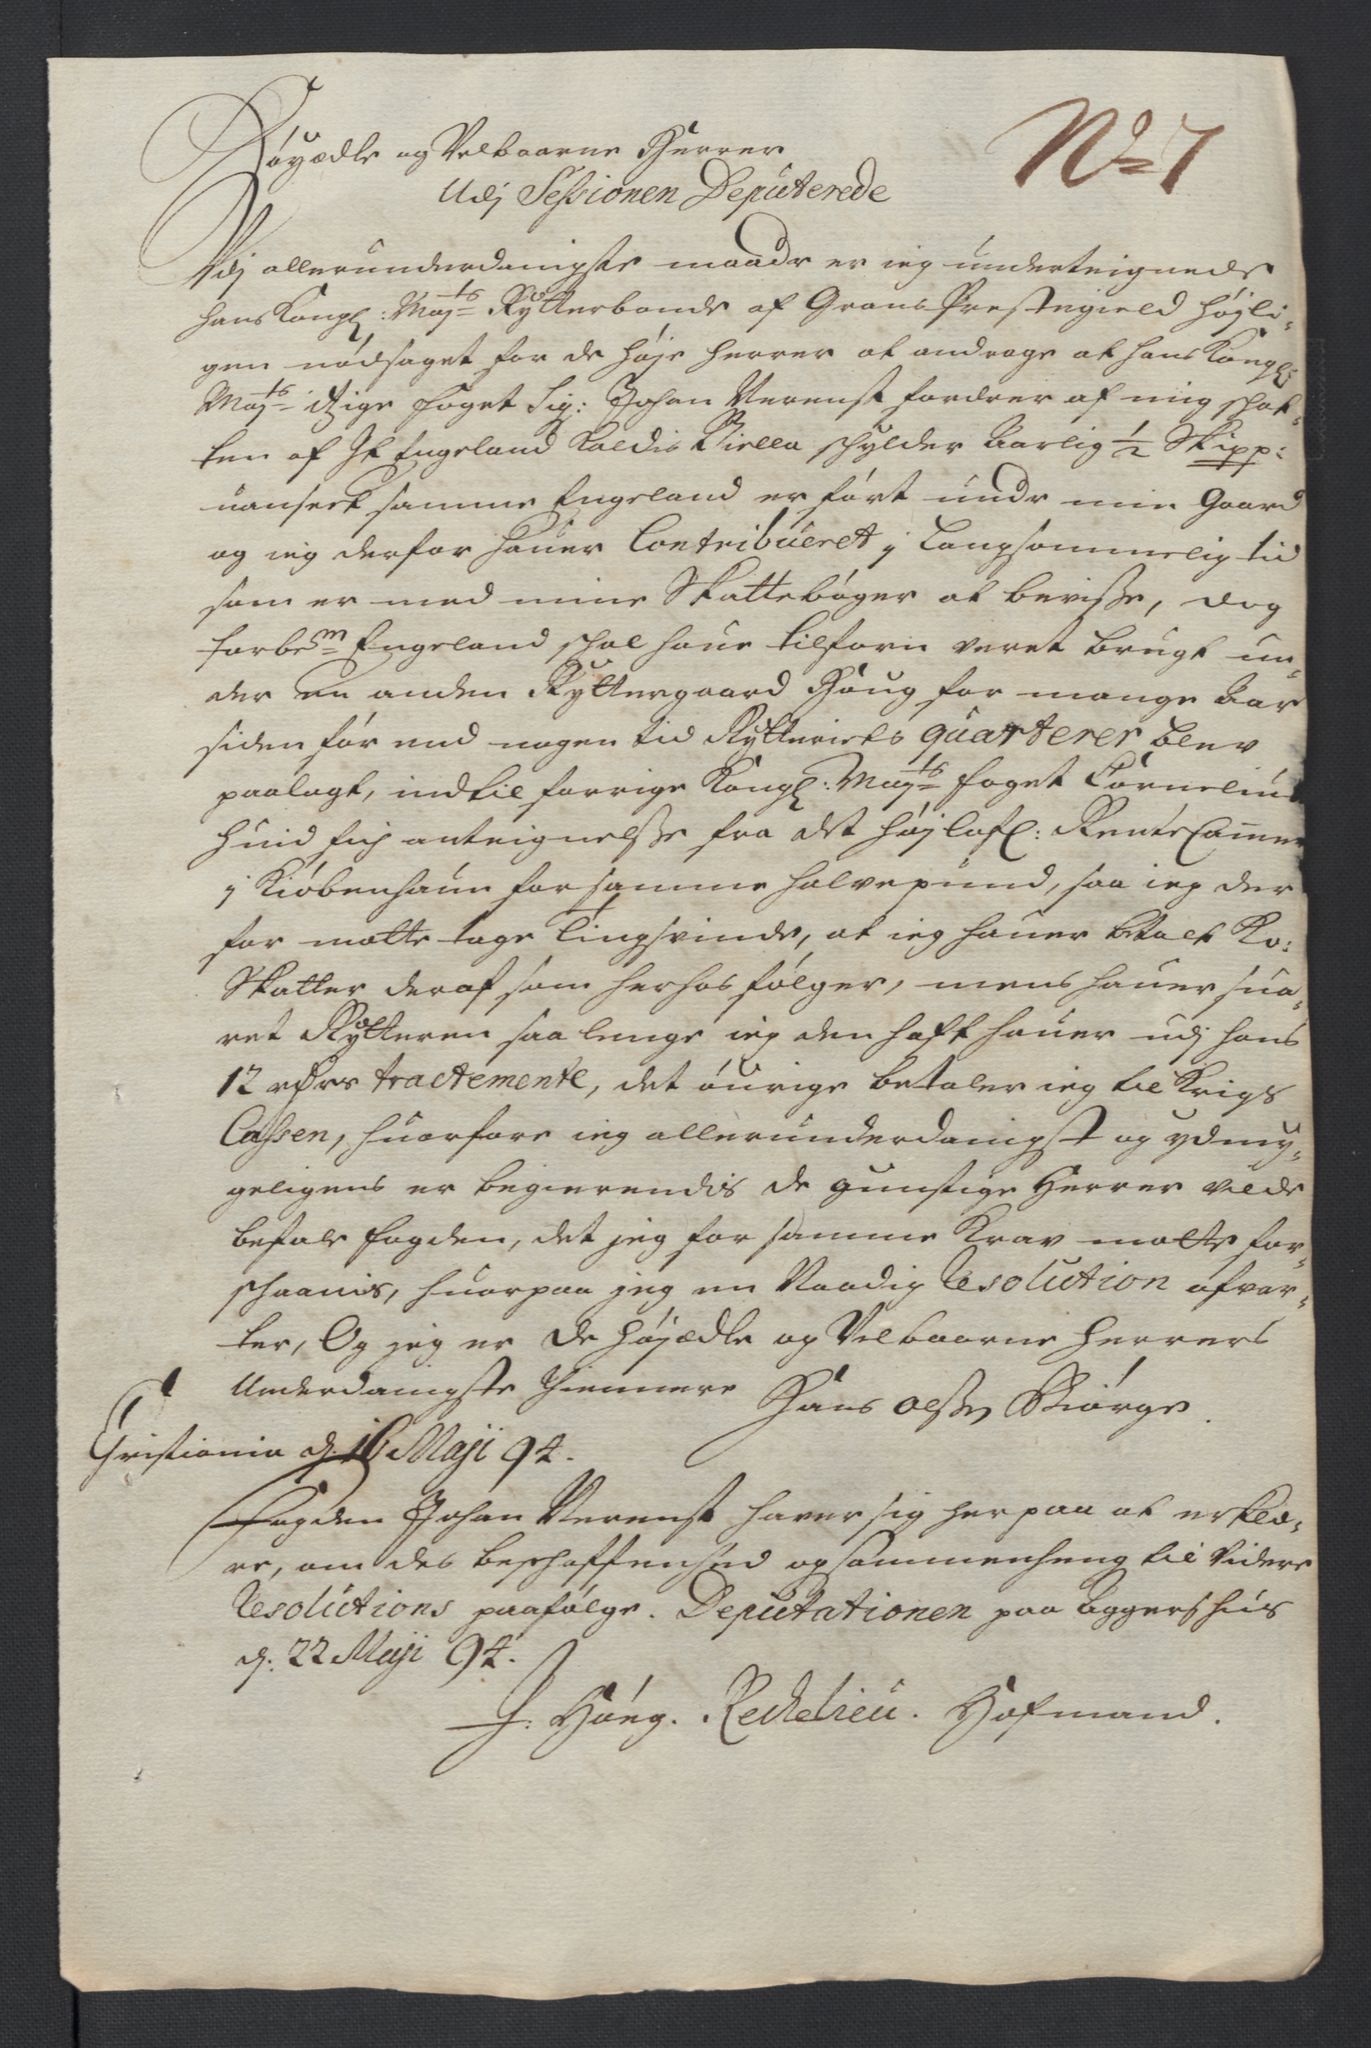 No 7
Höyædle og Velbaarne Herrer
Udj Sessionen Deputerede
Udj allerunderdanigste maade er ieg underteignede
hans Kongl: Mayts Rÿtterbonde af Grans Prestegield höjli-
gen nödsaget for de höje herrer at andrage at hans Kongl:
Mayts itzige foget Sig: Johan Verenst fordrer af mig schat-
ten af It Engeland kaldis Biella schylder Aarlig ½ Skipp:
uanseet samme Engeland er fört under min Gaard
og ieg derfor hauer Contribueret j langsommelig tid
som er med mine Skattebóger at bevisse, dog
forbem Engeland schal haue tilforn veret brugt un-
der en anden Ryttergaard Houg for mange Aar
siden för end nogen tid Rytteriets quarterer blev
paalagt, indtil forrige Kongl: Mayts foget Cornelius
huid fich anteignelsse fra det höjlofl: Rente Cammer
j Kiöbenhaun for samme halvepund, saa ieg der
for motte tage Tingsvinde, at ieg hauer betalt Ko:
Skatter deraf som herhos fölger, mens hauer sua-
ret Rÿtteren saa lenge ieg den hafft hauer udj hans
12 rdrs tractemente, det öurige betaler ieg til Krigs
Cassen, huorfore ieg allerunderdanigst og ydmy-
geligens er begierendis de gunstige Herrer vilde
befale fogden, det jeg for samme Krav motte for-
schaanis, huorpaa jeg en Naadig Resolution afvar-
ter, Og jeg er de höjædle og Velbaarne herrers
Underdanigste thiennere Hans olssen Biörge.
Christiania d. 16 Maji 94.
Fogden Johan Verenst haver sig herpaa at erklæ-
re, om des beschaffenhed og sammenheng til videre
Resolutions paafölge. Deputationen paa Aggershus
d: 22 Maji 94.
J: Höeg. Reichelieu. Hofmand.